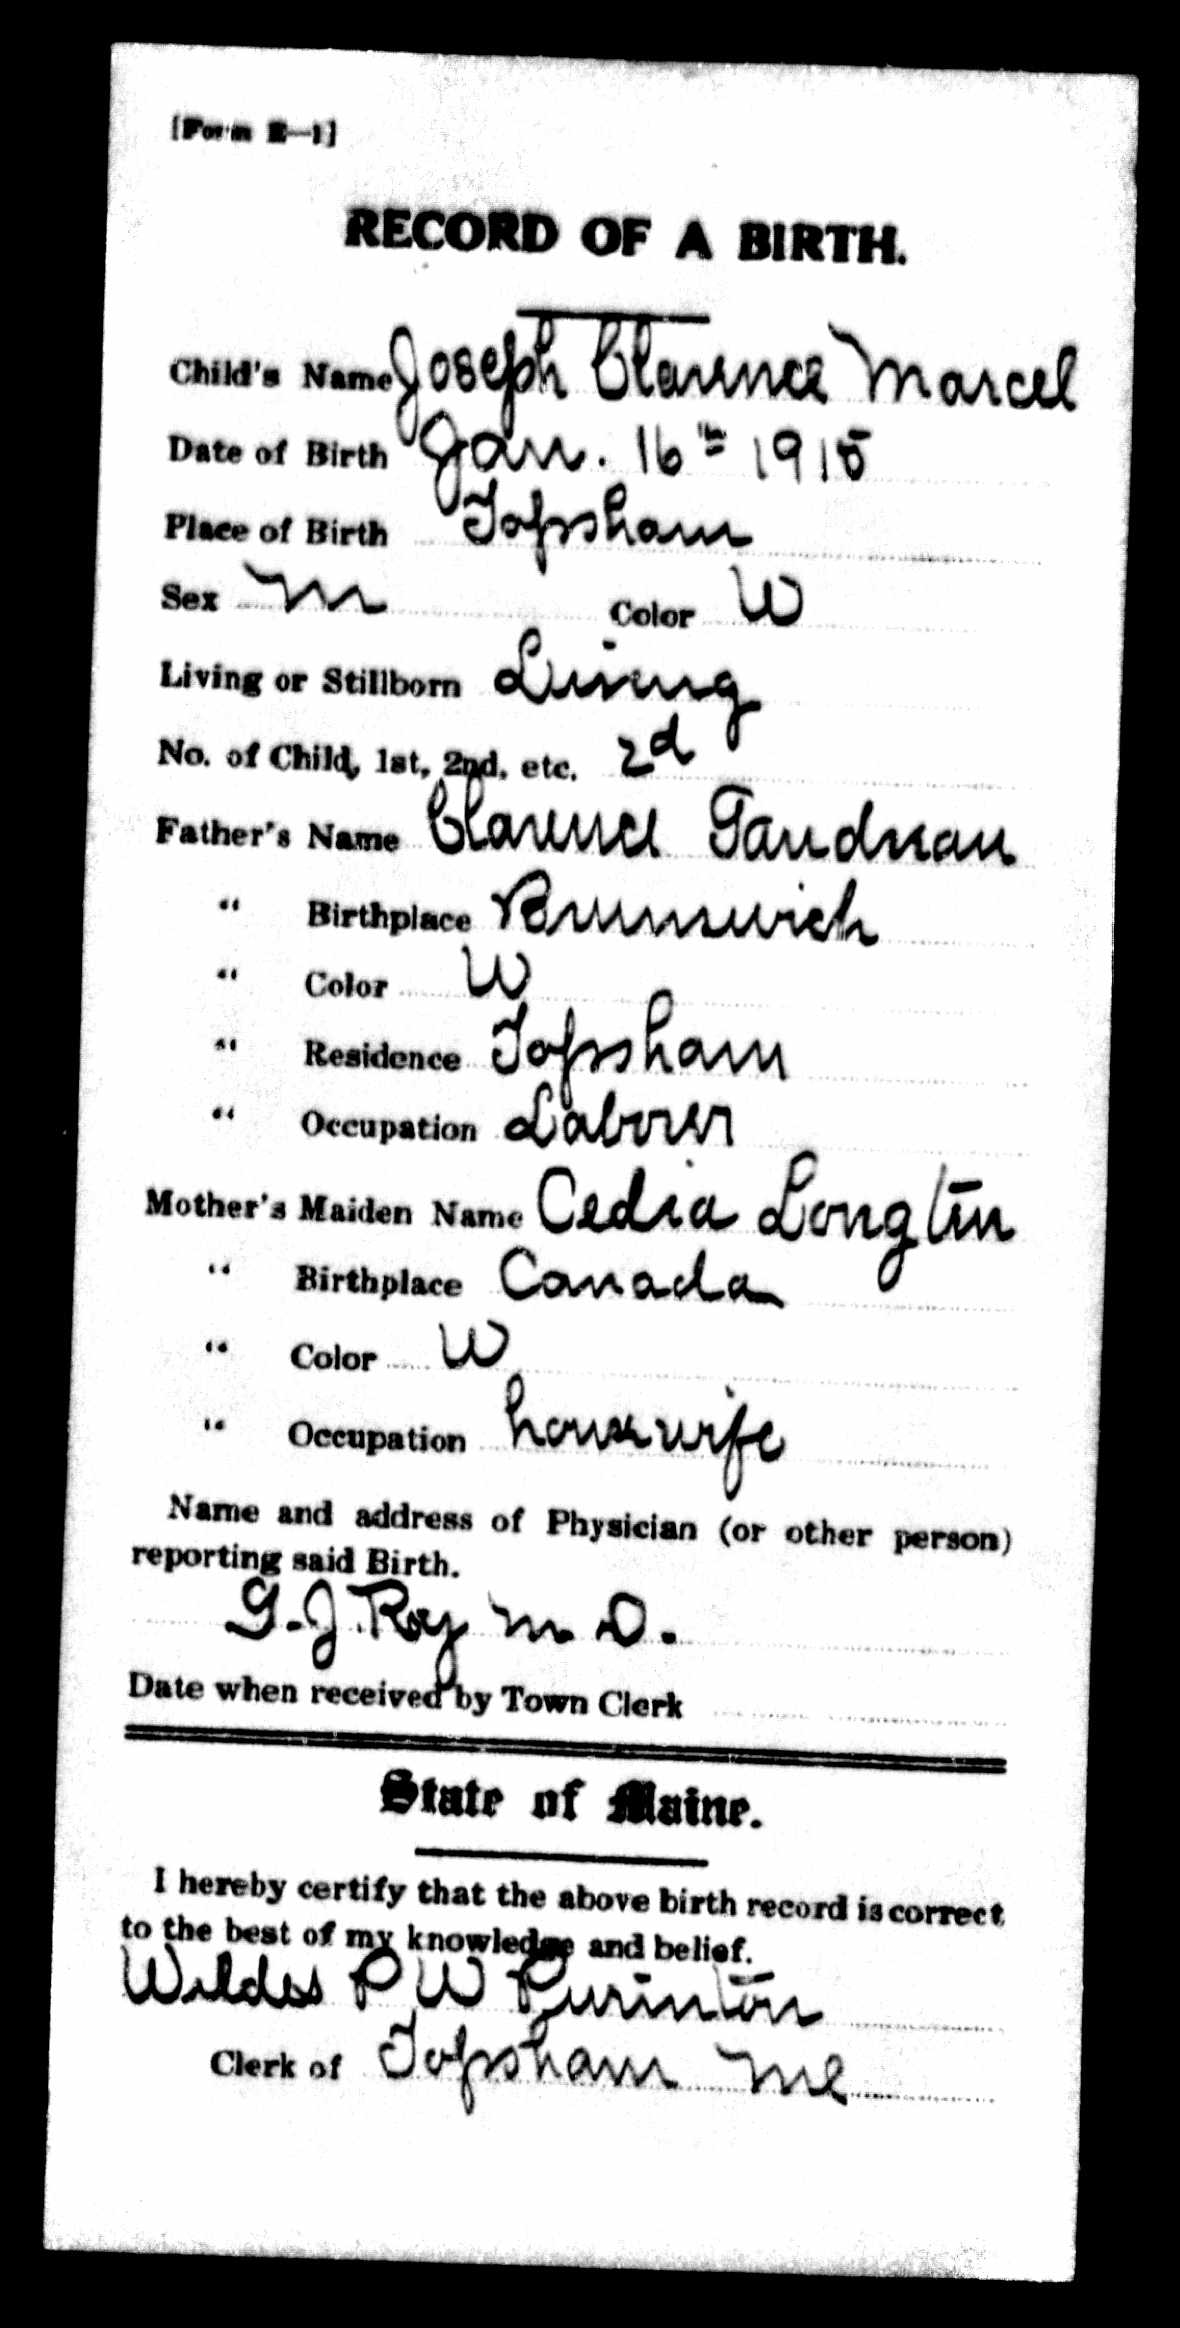 [Form R—1]
RECORD OF A BIRTH.
Child's Name Joseph Clarence Marcel
Date of Birth Jan. 16th 1915
Place of Birth Topsham
Sex M Color W
Living or Stillborn Living
No. of Child, 1st, 2nd, etc. 2d
Father's Name Clarence
" Birthplace Brunswick
" Color W
" Residence Topsham
" Occupation Laborer
Mother's Maiden Name Cedia Longtin
" Birthplace Canada
" Color W
" Occupation housewife
Name and address of Physician (or other person)
reporting said Birth.
G. J. Roy M. D.
Date when received by Town Clerk
State of Maine.
I hereby certify that the above birth record is correct
to the best of my knowledge and belief.
P W Purinton
Clerk of Topsham Me